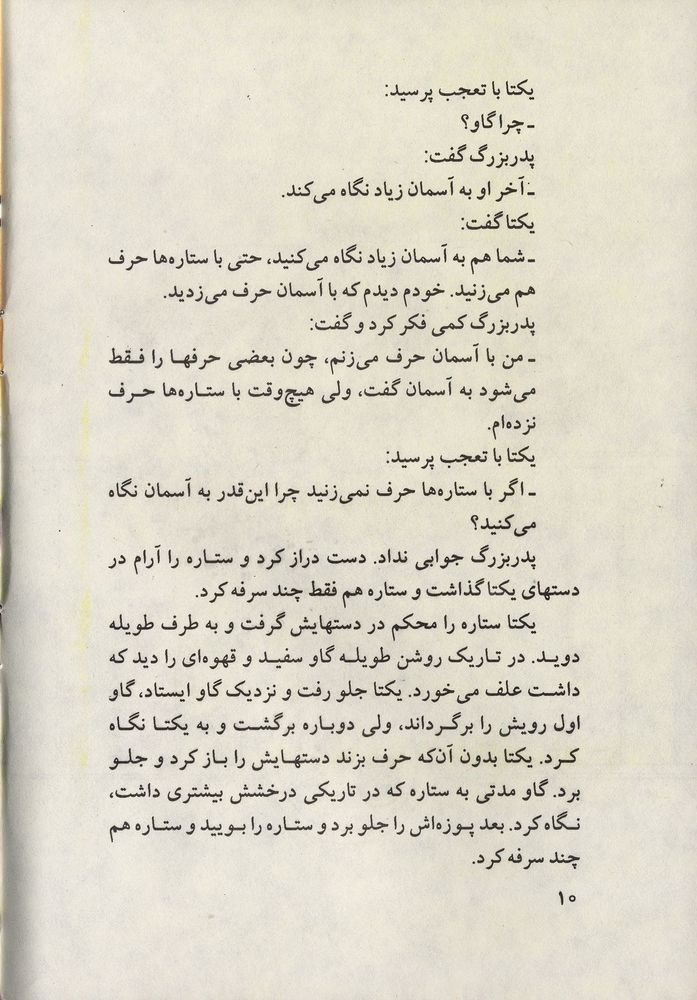 یکتا با تعجب پرسید:
ـ چرا گاو؟
پدربزرگ گفت:
ـ آخر او به آسمان زیاد نگاه می‌کند.
یکتا گفت:
ـ شما هم به آسمان زیاد نگاه می‌کنید، حتی با ستاره‌ها حرف
هم می‌زنید. خودم دیدم که با آسمان حرف می‌زدید.
پدربزرگ کمی فکر کرد و گفت:
ـ من با آسمان حرف می‌زنم، چون بعضی حرفها را فقط
می‌شود به آسمان گفت، ولی هیچ‌وقت با ستاره‌ها حرف
نزده‌ام.
یکتا با تعجب پرسید:
ـ اگر با ستاره‌ها حرف نمی‌زنید چرا این‌قدر به آسمان نگاه
می‌کنید؟
پدربزرگ جوابی نداد. دست دراز کرد و ستاره را آرام در
دستهای یکتا گذاشت و ستاره هم فقط چند سرفه کرد.
یکتا ستاره را محکم در دستهایش گرفت و به طرف طویله
دوید. در تاریک روشن طویله گاو سفید و قهوه‌ای را دید که
داشت علف می‌خورد. یکتا جلو رفت و نزدیک گاو ایستاد، گاو
اول رویش را برگرداند، ولی دوباره برگشت و به یکتا نگاه
کرد. یکتا بدون آن‌که حرف بزند دستهایش را باز کرد و جلو
برد. گاو مدتی به ستاره که در تاریکی درخشش بیشتری داشت،
نگاه کرد. بعد پوزه‌اش را جلو برد و ستاره را بویید و ستاره هم
چند سرفه کرد.
۱۰